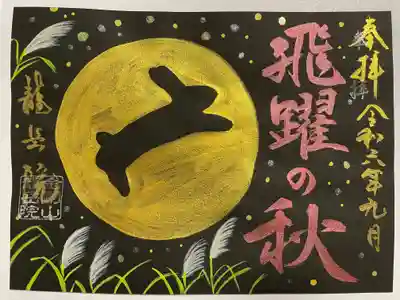 奉拝
令和六年九月
飛躍の秋
龍岳院